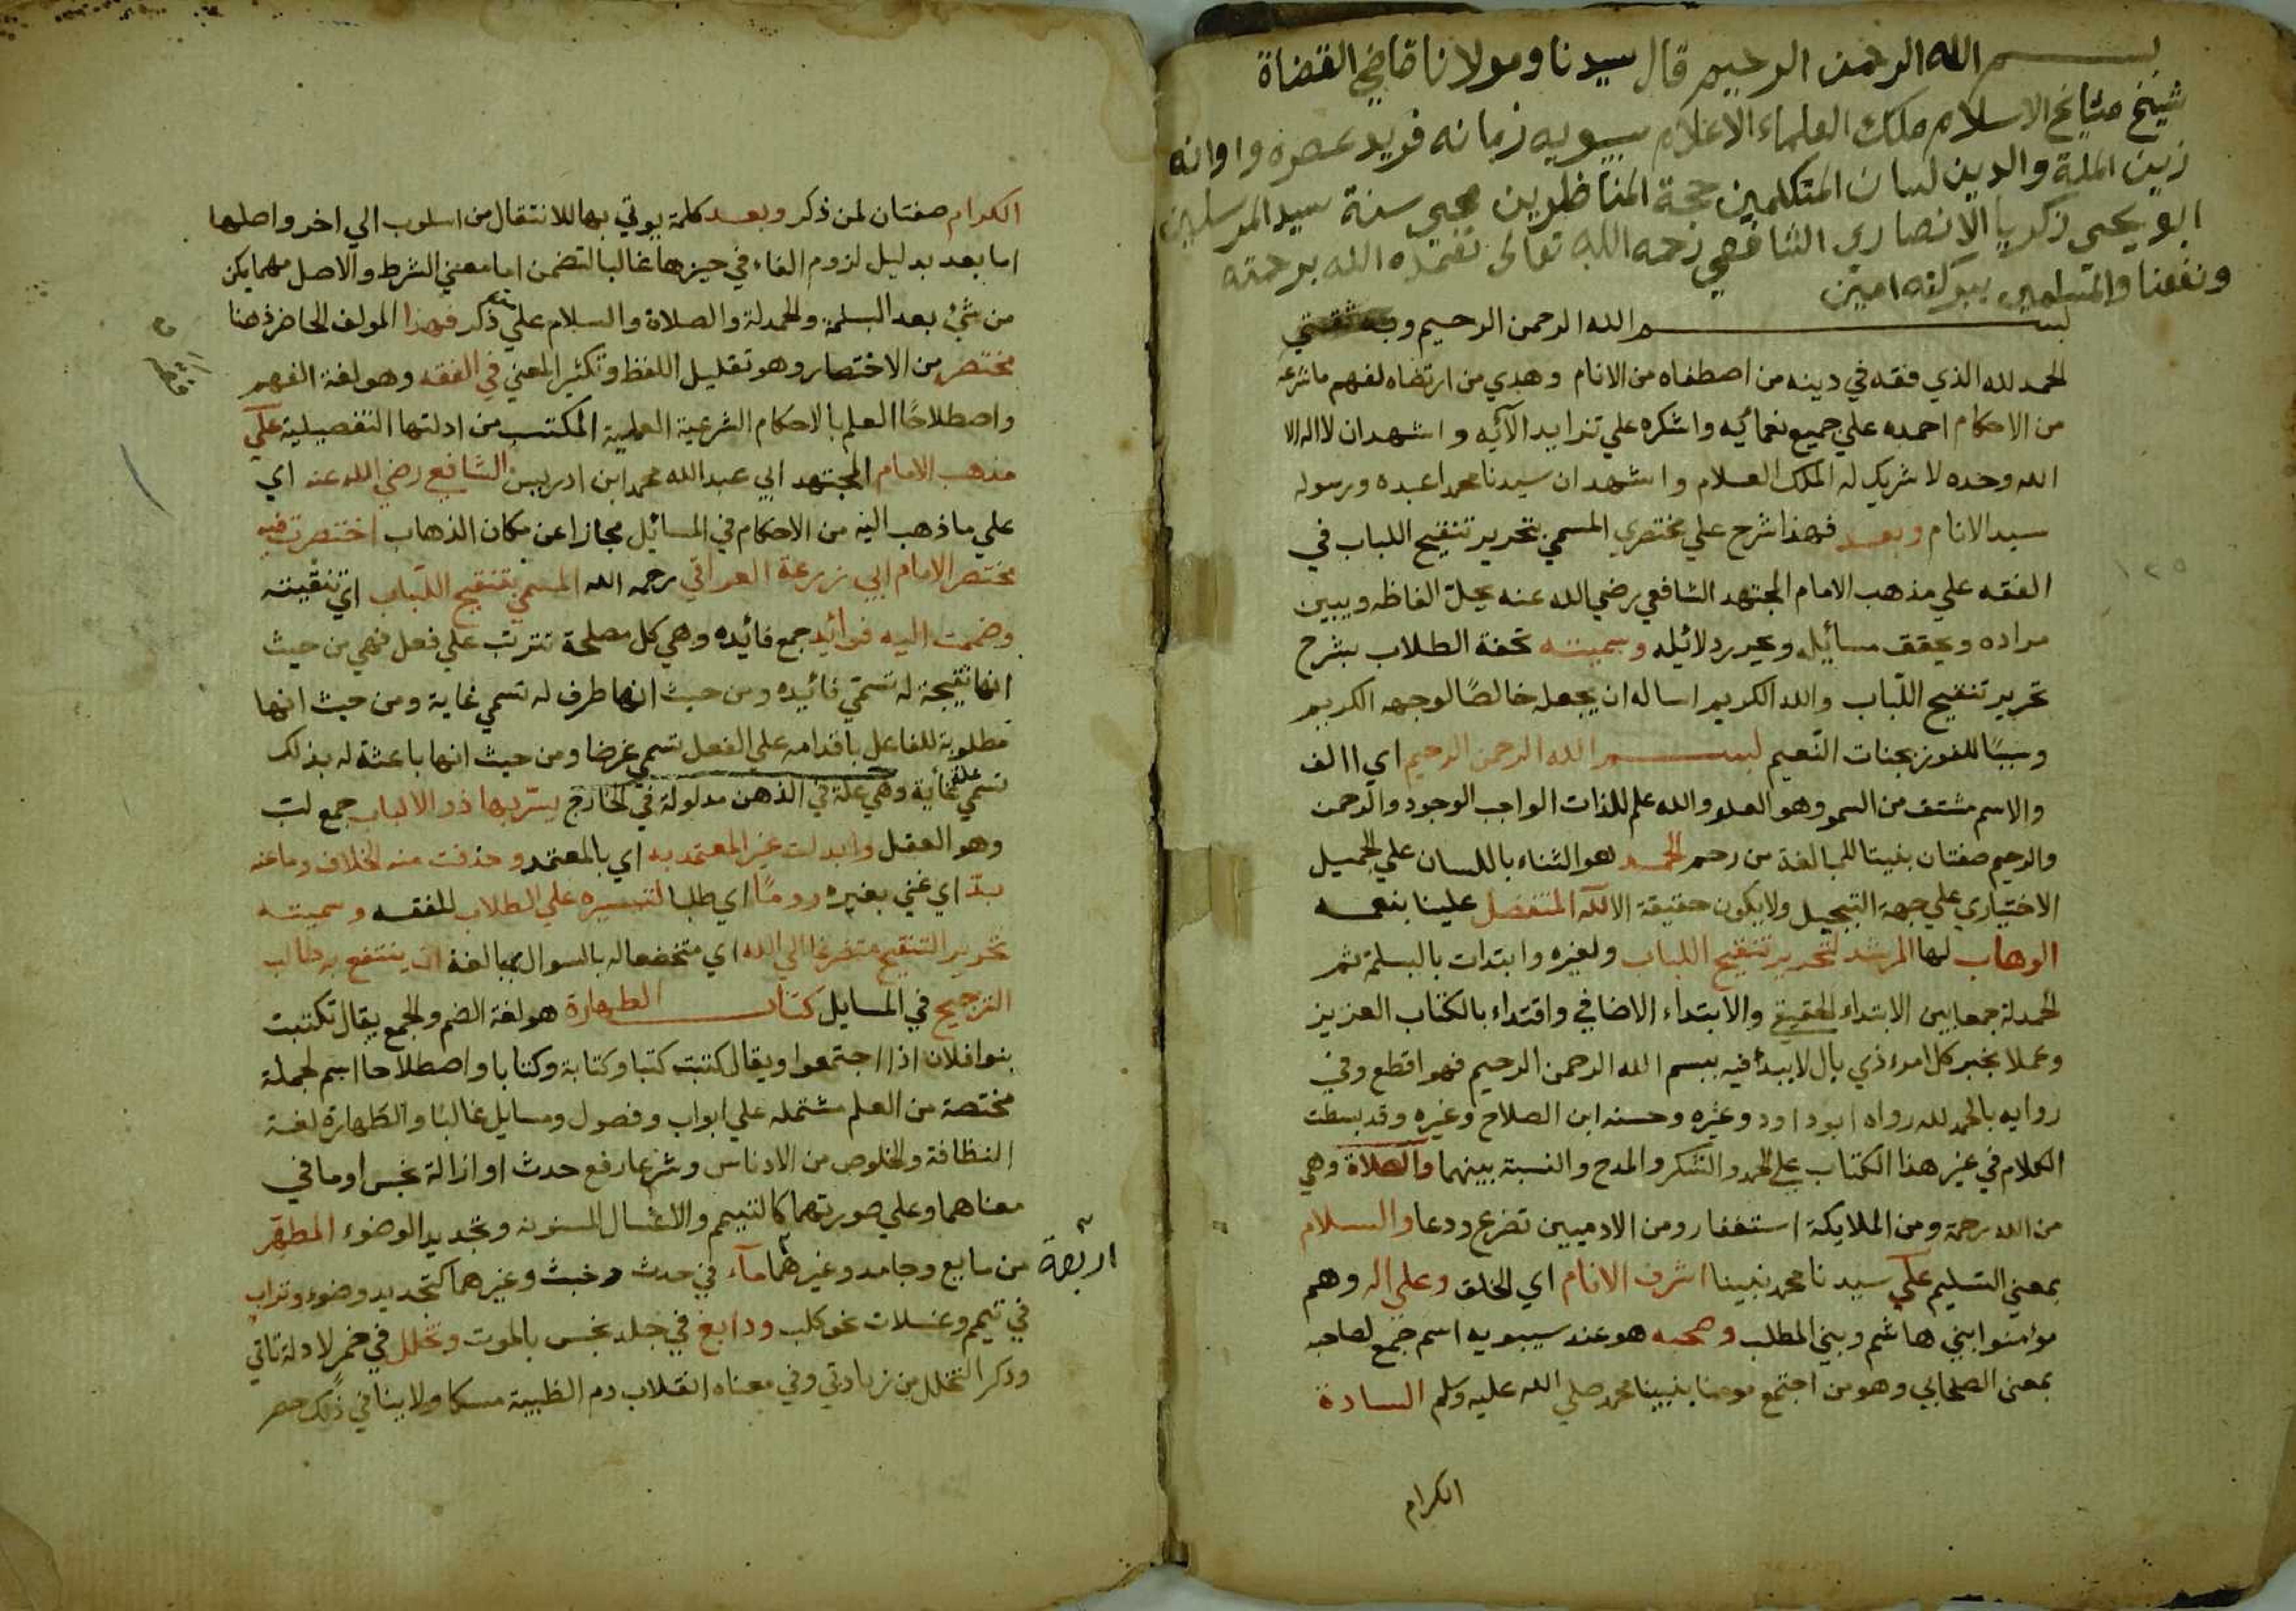 بسم الله الرحمن الرحيم قال سيدنا ومولانا قاضي القضاة
شيخ مشايخ الاسلام ملك العلماء الاعلام سيبويه زمانه فريد عصره واوانه
زين الملة والدين لسان المتكلمين حجة المناظرين محيي سنة سيد المرسلين
ابو يحيى زكريا الانصاري الشافعي رحمه الله تعالى تغمده الله برحمته
ونفعنا والمسلمين ببركته امين
بسم الله الرحمن الرحيم وبه ثقتي
الحمد لله الذي فقه في دينه من اصطفاه من الانام وهدي من ارتضاه لفهم ما شرعه
من الاحكام احمده علي جميع نعمائيه واشكره علي تزايد الآئيه واشهد ان لا اله الا
الله وحده لا شريك له الملك العلام واشهد ان سيدنا محمدا عبده ورسوله
سيد الانام وبعد فهذا شرح علي مختصري المسمي بتحرير تنقيح اللباب في
الفقه علي مذهب الامام المجتهد الشافعي رضي الله عنه يحلّ الفاظه ويبين
مراده ويحقق مسائيله ويحرر دلائيله وسميتــه تحفة الطلاب بشرح
تحرير تنقيح اللّباب والله الكريم اساله ان يجعله خالصًا لوجهه الكريم
وسببًا للفوز بجنات النّعيم بسم الله الرحمن الرحيم اي االف
والاسم مشتق من السمو وهو العلو والله علم للذات الواجب الوجود والرحمن
والرحيم صفتان بنيتا للمبالغة من رحم الحمد هو الثناء باللسان علي الجميل
الاختياري علي جهة التبجيل ولا يكون حقيقة الا لله المتفضل علينا بنعمه
الوهاب لها المرشد لتحرير تنقيح اللباب ولغيره وابتدات بالبسلمة ثم
الحمدلة جمعا بين الابتداء الحقيقي والابتداء الاضافي واقتداء بالكتاب العزيز
وعملا بخبر كل امرء ذي بال لا يبدأ فيه ببسم الله الرحمن الرحيم فهو اقطع وفي
روايه بالحمد لله رواه ابو داود وغيره وحسنه ابن الصلاح وغيره وقد بسطت
الكلام في غير هذا الكتاب علي الحمد والشكر والمدح والنسبة بينهما والصلاة وهي
من الله رحمة ومن الملايكة استغفار ومن الادميين تضرع ودعا والسلام
بمعني التسليم علي سيدنا محمد نبينا اشرف الانام اي الخلق وعلي اله وهم
مؤمنوا بني هاشم وبني المطلب وصحبه هو عند سيبويه اسم جمع لصاحبه
بمعني الصحابي وهو من اجتمع مومنا بنبينا محمد صلي الله عليه وسلم السادة
الكرام
الكرام صفتان لمن ذكر وبعد كلمة يوتي بها للانتقال من اسلوب الي اخر واصلها
اما بعد بدليل لزوم الفاء في حيزها غالبا لتضمن اما معني الشرط والاصل مهما يكن
من شئ بعد البسلمة والحمدلة والصلاة والسلام علي من ذكر فهذا المولف الحاضر ذهنا
مختصر من الاختصار وهو تقليل اللفظ وتكثير المعني في الفقه وهو لغة الفهم
واصطلاحًا العلم بالاحكام الشرعية العملية المكتسب من ادلتها التفصيلية علي
مذهب الامام المجتهد ابي عبد الله محمد ابن ادريس الشافعي رضي الله عنه اي
علي ما ذهب اليه من الاحكام في المسائيل مجازا عن مكان الذهاب اختصرت فيه
مختصر الامام ابي زرعة العراقي رحمه الله المسمي بتنقيح اللباب اي تنقيته
وضممت اليه فوائد جمع فائيده وهي كل مصلحة تترتب علي فعل فهي من حيث
انها نتيجة له تسمي فائيده ومن حيث انها طرف له تسمي غاية ومن حيث انها
مطلوبة للفاعل باقدامه علي الفعل تسمي غرضا ومن حيث انها باعثة له بذلك
تسمي علة غائية وهي علة في الذهن مدلولة في الخارج يسرّ بها ذو الالباب جمع لب
وهو العقل وابدلت غير المعتمد به اي بالمعتمد وحذفت منه الخلاف وما عنه
بدّ اي غني بغيره رومًا اي طلبا لتيسيره علي الطلاب للفقه وسميته
تحرير التنقيح متضرعا الي الله اي متخضعا له بالسوال بمبالغة ان ينتفع به طالب
الترجيح في المسايل كتاب الطهارة هو لغة الضم والجمع يقال تكتبت
بنوا فلان اذا اجتمعوا ويقال كتبت كتبا وكتابة وكتابا واصطلاحا اسم لجملة
مختصة من العلم مشتمله علي ابواب وفصول ومسايل غالبًا والطهارة لغة
النظافة والخلوص من الادناس وشرعا رفع حدث او ازالة نجس او ما في
معناهما وعلي صورتهما كالتيمم والاغسال المسنونه وتجديد الوضوء المطهّر
اربعة
من مايع وجامد وغيرهما مآء في حدث وخبث وغيرهما كتجديد وضوء وتراب
في تيمم وغسلات نحو كلب ودابغ في جلد نجس بالموت وتخلل في خمر لادلة تاتي
وذكر التخلل من زيادتي وفي معناه انقلاب دم الظبية مسكا ولا ينافي ذلك حصر